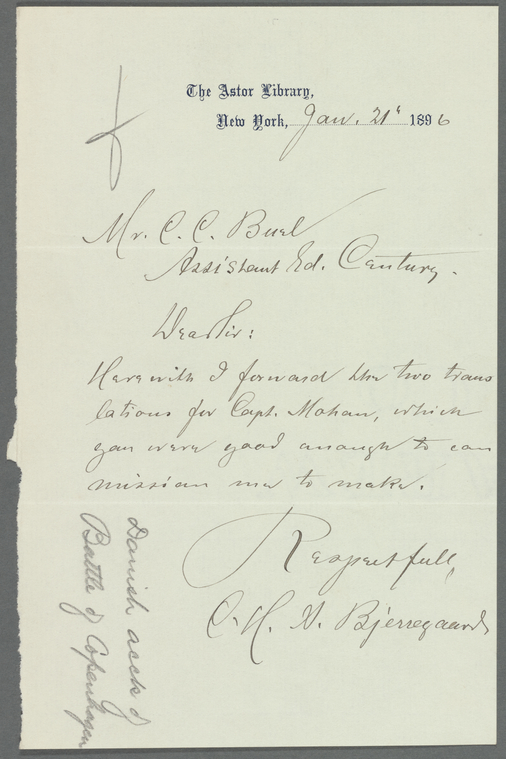 The Astor Library,
New York, Jan. 21' 1896
Mr. C. C. Buel
Assistant Ed. Century.
Dear Sir:
Herewith I forward the two trans
lations for Capt. Mahan, which
you were good enough to com
mission me to make.
Respectfull,
C. H. A. Bjerregaard
Danish acct of
Battle of Copenhagen